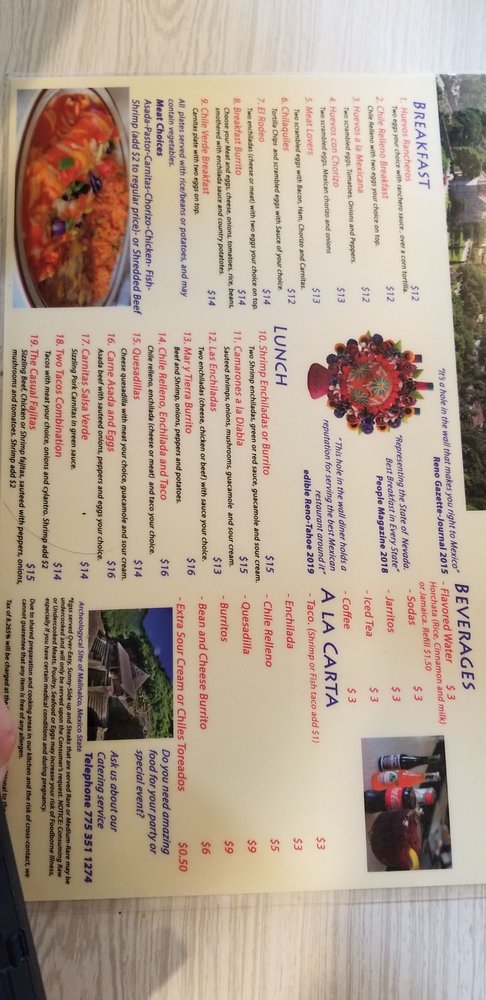 BREAKFAST
1. Huevos Rancheros $12
Two egg your choice with ranchero sauce - over a corn tortilla.
2. Chile Relleno Breakfast $12
Chile Relleno with two eggs your choice on top.
3. Huevos a la Mexicana $12
Two scrambled eggs, Tomatoes, Onions and Peppers.
4. Huevos con Chorizo $13
Two scrambled eggs, Mexican chorizo and onions
5. Meat Lovers $13
Two scrambled eggs with Bacon, Ham, Chorizo and Carnitas.
6. Chilaquiles $12
Tortilla Chips and scrambled eggs with Sauce of your choice.
7. El Rodeo $14
Two enchiladas (cheese or meat) with two eggs your choice on top.
8. Breakfast Burrito $14
Choose your Meat and eggs, cheese, onions, tomatoes, rice, beans,
smothered with enchilada sauce and country potatoes.
9. Chile Verde Breakfast $14
Carnitas plate with two eggs on top.
All plates served with rice/beans or potatoes, and may
contain vegetables.
Meat Choices
Asada-Pastor-Carnitas-Chorizo-Chicken- Fish-
Shrimp (add $2 to regular price)- or Shredded Beef
"It's a hole in the wall that makes you right to Mexico"
Reno Gazette-Journal 2015
"Representing the State of Nevada,
Best Breakfast in Every State"
People Magazine 2018
"This hole in the wall diner holds a
reputation for serving the best Mexican
restaurant around it"
edible Reno-Tahoe 2019
LUNCH
10. Shrimp Enchiladas or Burrito $15
Two Shrimp enchiladas, green or red sauce, guacamole and sour cream.
11. Camarones a la Diabla $15
Sauteed shrimps, onions, mushrooms, guacamole and sour cream.
12. Las Enchiladas $13
Two enchiladas (cheese, chicken or beef) with sauce your choice.
13. Mar y Tierra Burrito $16
Beef and Shrimp, onions, peppers and potatoes.
14. Chile Relleno, Enchilada and Taco $16
Chile releno, enchilada (cheese or meat) and taco your choice.
15. Quesadillas $14
Cheese quesadilla with meat your choice, guacamole and sour cream.
16. Carne Asada and Eggs $16
Asada beef with sauteed onions, peppers and eggs your choice.
17. Carnitas Salsa Verde $14
Sizzling Pork Carnitas in green sauce.
18. Two Tacos Combination $14
Tacos with meat your choice, onions and cylantro, Shrimp add $2
19. The Casual Fajitas $15
Sizzling Beef, Chicken or Shrimp fajitas, sauteed with peppers, onions,
mushrooms and tomatoes. Shrimp add $2
BEVERAGES
- Flavored Water $ 3
Horchata (Rice, Cinnamon and milk)
or Jamaica. Refill $1.50
- Sodas $ 3
- Jarritos $ 3
- Iced Tea $ 3
- Coffee $ 3
A LA CARTA
- Taco. (Shrimp or Fish taco add $1) $3
- Enchilada $3
- Chile Relleno $5
- Quesadilla $9
-Burritos $9
- Bean and Cheese Burrito $6
- Extra Sour Cream or Chiles Toreados $0.50
Do you need amazing
food for your party or
special event?
Ask us about our
Catering service
Telephone 775 351 1274
Archeological Site of Malinalco, Mexico State
*Eggs Over-Easy, Sunny-Side up and Steaks that are served Rare or Medium-Rare may be
undercooked and will only be served upon the Consumer's request. NOTICE: Consuming Raw
or Undercooked Meats, Poultry, Seafood or Eggs may increase your risk of Foodborne Illness,
especially if you have certain medical conditions and during pregnancy.
Due to shared preparation and cooking areas in our kitchen and the risk of cross-contact, we
cannot guarantee that any item is free of any allergen.
Tax of 8.265% will be charged at the